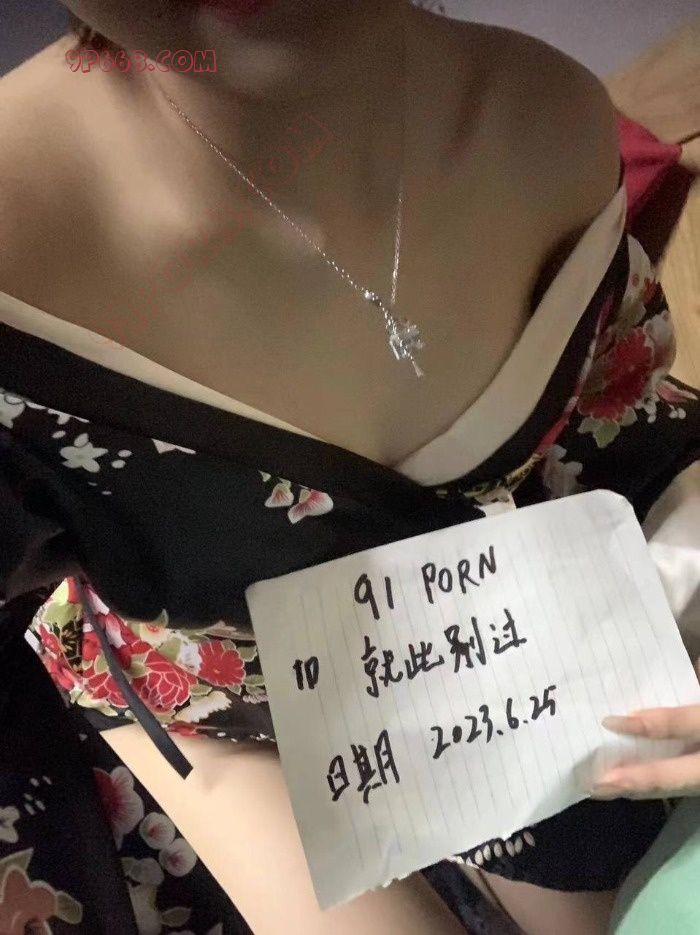 9P66B.COM
91 PORN
ID 就此别过
日期 2023.6.25